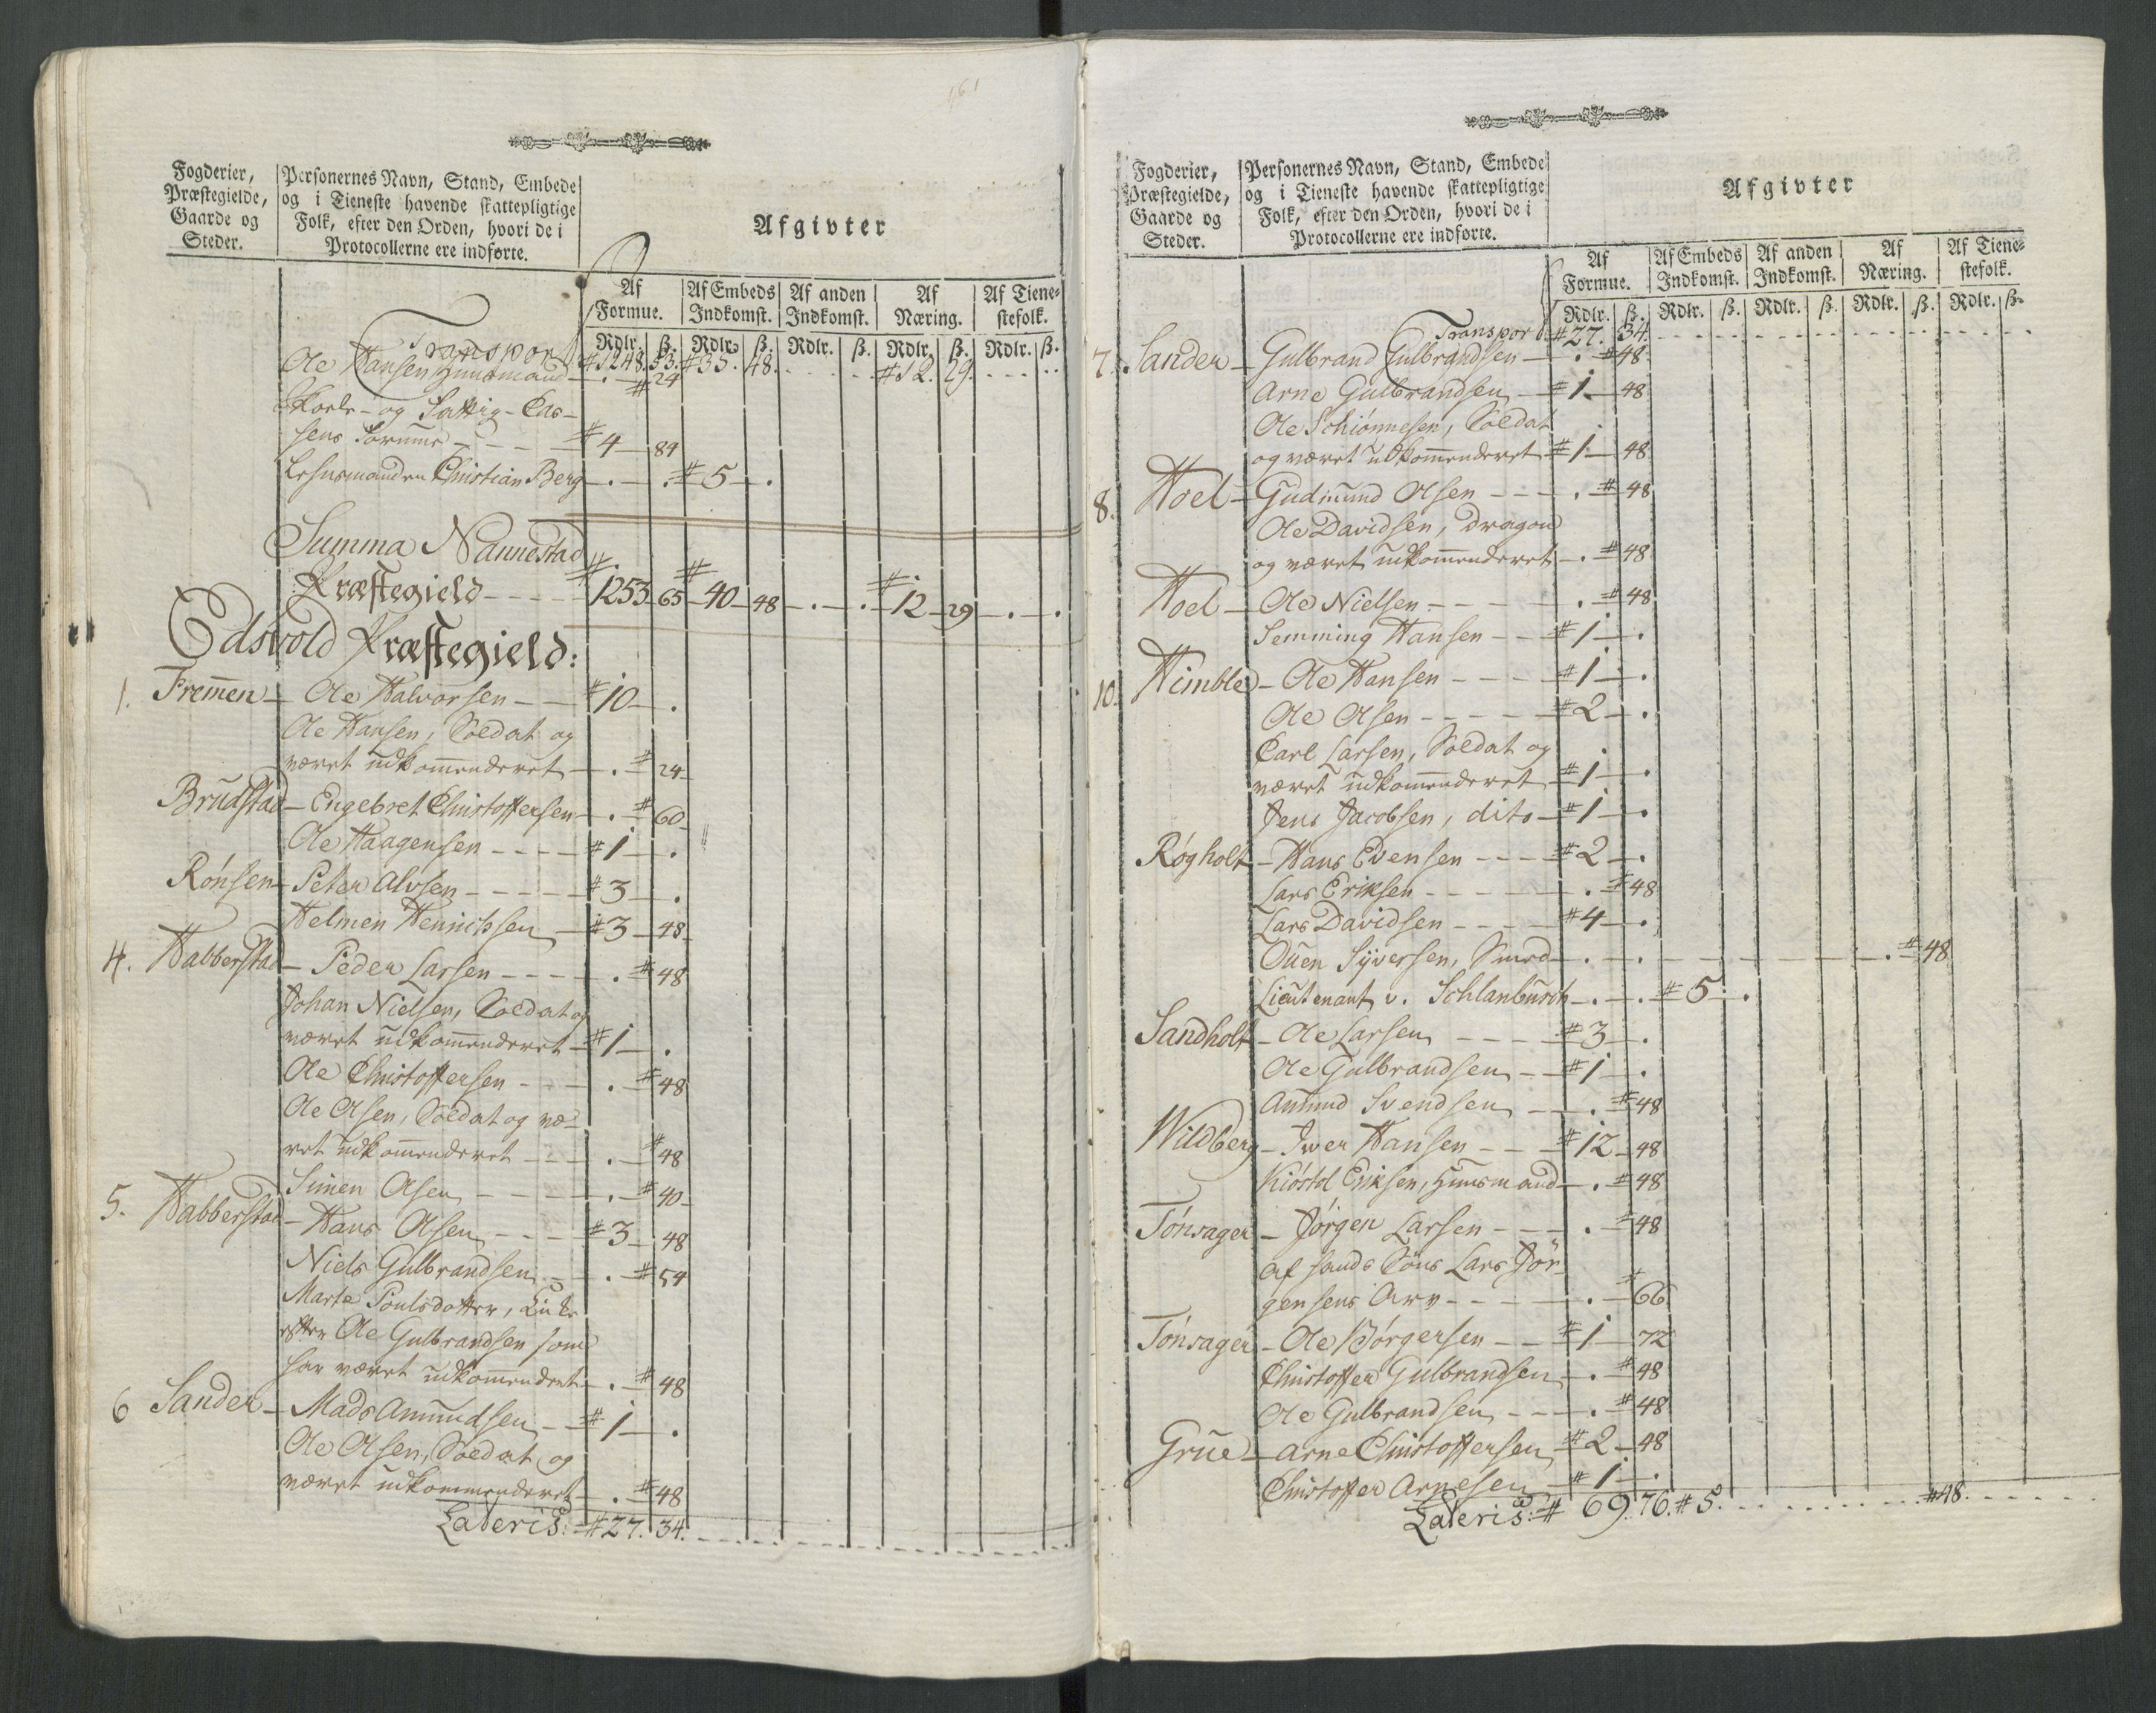 161
Fogderier,
Præstegielde,
Gaarde og
Steder.
Personernes Navn, Stand, Embede
og i Tieneste havende skattepligtige
Folk, efter den Orden, hvori de i
Protocollerne ere indførte.
Afgivter
Af Formue. Af Embeds Indkomst. Af anden Indkomst. Af Næring. Af Tienestefolk.
Rdlr. ß. Rdlr. ß. Rdlr. ß. Rdlr. ß. Rdlr. ß.
Transport # 1248. 53. # 35. 48. # 12. 29.
Ole Hansen Huusmand . # 24
Skole- og Fattig-Cas-
sens Formue # 4 89
Lehnsmanden Christian Berg . . # 5 .
Summa Nannestad
Præstegield # 1253 65 # 40 48 . . # 12 29 . .
Edsvold Præstegield:
1. Fremen Ole Halvorsen # 10 .
Ole Hansen, Soldat og
været udkommenderet . # 24
Brudstad Engebret Christoffersen . # 60
Ole Haagensen # 1 .
Rønsen Peter Alvsen # 3 .
Helmen Henrichsen # 3 48
4. Habberstad Peder Larsen . # 48
Johan Nielsen, Soldat og
været udkommenderet # 1 .
Ole Christoffersen . # 48
Ole Olsen, Soldat og væ-
ret udkommenderet . # 48
Simen Olsen . # 40
5. Habberstad Hans Olsen # 3 48
Niels Gulbrandsen . # 54
Marte Poulsdatter, Enke
efter Ole Gulbrandsen som
har været udkommendert . # 48
6 Sander Mads Amundsen # 1 .
Ole Olsen, Soldat og
været udkommenderet . # 48
Lateris: # 27. 34.
Fogderier,
Præstegielde,
Gaarde og
Steder.
Personernes Navn, Stand, Embede
og i Tieneste havende skattepligtige
Folk, efter den Orden, hvori de i
Protocollerne ere indførte.
Afgivter
Af Formue. Af Embeds Indkomst. Af anden Indkomst. Af Næring. Af Tienestefolk.
Rdlr. ß. Rdlr. ß. Rdlr. ß. Rdlr. ß. Rdlr. ß.
Transport # 27. 34.
7. Sander Gulbrand Gulbrandsen . # 48
Arne Gulbrandsen # 1 48
Ole Schiønnesen, Soldat
og været udkommenderet # 1 48
8. Hoel Gudmund Olsen . # 48
Ole Davidsen, Dragon
og været udkommenderet . # 48
Hoel Ole Nielsen . # 48
Semming Hansen # 1 .
10. Himble Ole Hansen # 1 .
Ole Olsen # 2 .
Carl Larsen, Soldat og
været udkommenderet # 1 .
Jens Jacobsen, dito # 1 .
Røgholt Hans Evensen # 2 .
Lars Eriksen . # 48
Lars Davidsen # 4 .
Ouen Syversen, Smed . . . # 48
Lieutenant v. Schlanbusch . . # 5 .
Sandholt Ole Larsen # 3 .
Ole Gulbrandsen # 1 .
Amund Svendsen . # 48
Wildberg Iver Hansen # 12 48
Kiøstol Eriksen, Huusmand . # 48
Tønsager Jørgen Larsen . # 48
af hands Søns Lars Jør-
gensens Arv . # 66
Tønsager Ole Børgersen # 1 72
Christoffer Gulbrandsen . # 48
Ole Gulbrandsen . # 48
Grue Arne Christoffersen # 2 48
Christoffer Arnesen # 1 .
Lateris: # 69. 76. # 5. # 48.